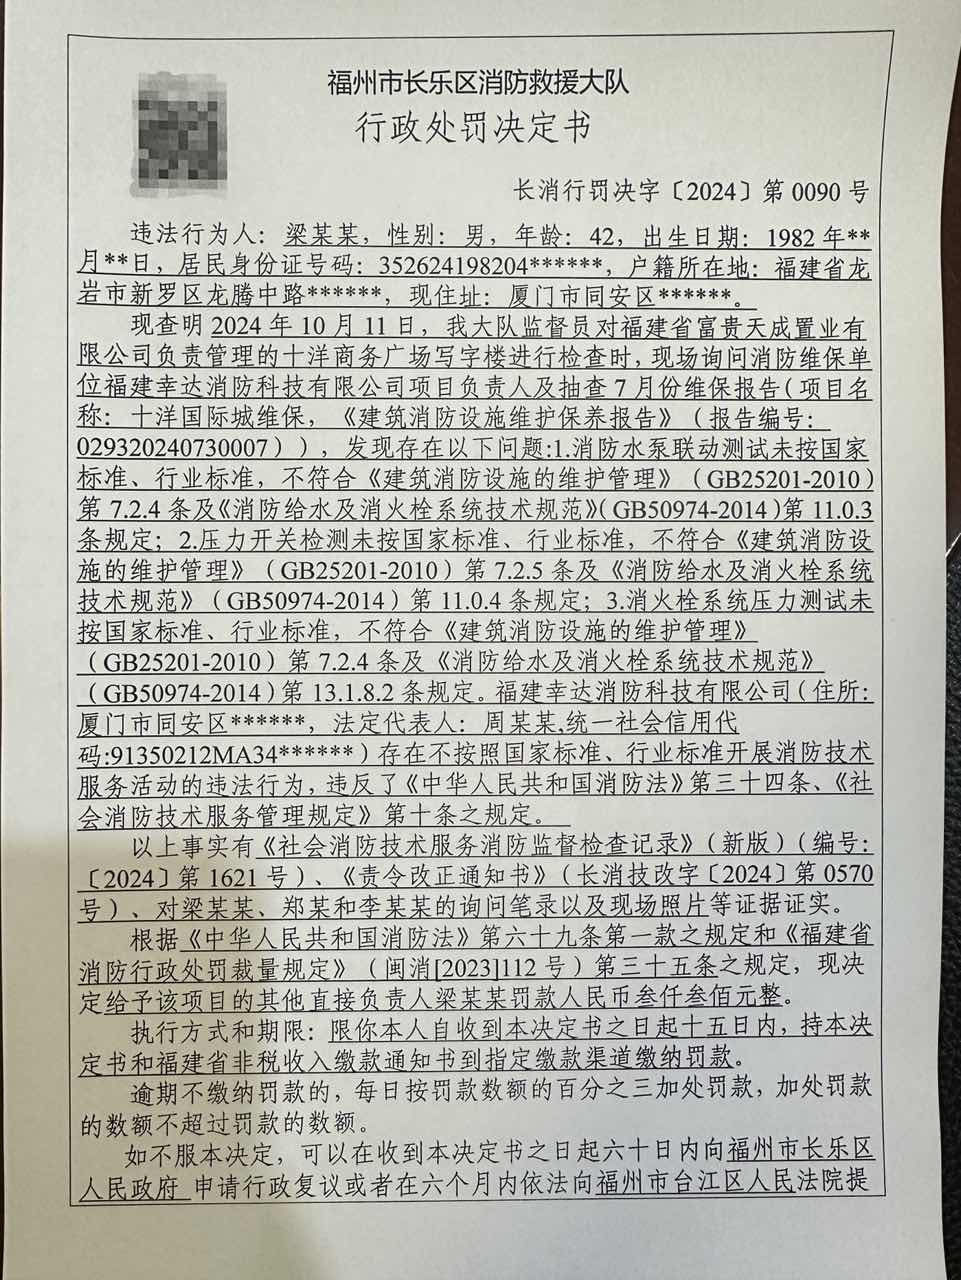 福州市长乐区消防救援大队
行政处罚决定书
长消行罚决字〔2024〕第 0090 号
违法行为人：梁某某，性别：男，年龄：42，出生日期：1982 年**
月**日，居民身份证号码：352624198204******，户籍所在地：福建省龙
岩市新罗区龙腾中路******，现住址：厦门市同安区******。
现查明 2024 年 10 月 11 日，我大队监督员对福建省富贵天成置业有
限公司负责管理的十洋商务广场写字楼进行检查时，现场询问消防维保单
位福建幸达消防科技有限公司项目负责人及抽查 7 月份维保报告（项目名
称：十洋国际城维保，《建筑消防设施维护保养报告》（报告编号：
029320240730007）），发现存在以下问题:1.消防水泵联动测试未按国家
标准、行业标准，不符合《建筑消防设施的维护管理》（GB25201-2010）
第 7.2.4 条及《消防给水及消火栓系统技术规范》（GB50974-2014）第 11.0.3
条规定；2.压力开关检测未按国家标准、行业标准，不符合《建筑消防设
施的维护管理》（GB25201-2010）第 7.2.5 条及《消防给水及消火栓系统
技术规范》（GB50974-2014）第 11.0.4 条规定；3.消火栓系统压力测试未
按国家标准、行业标准，不符合《建筑消防设施的维护管理》
（GB25201-2010）第 7.2.4 条及《消防给水及消火栓系统技术规范》
（GB50974-2014）第 13.1.8.2 条规定。福建幸达消防科技有限公司（住所：
厦门市同安区******，法定代表人：周某某,统一社会信用代
码:91350212MA34******）存在不按照国家标准、行业标准开展消防技术
服务活动的违法行为，违反了《中华人民共和国消防法》第三十四条、《社
会消防技术服务管理规定》第十条之规定。
以上事实有《社会消防技术服务消防监督检查记录》（新版）（编号：
〔2024〕第 1621 号）、《责令改正通知书》（长消技改字〔2024〕第 0570
号）、对梁某某、郑某和李某某的询问笔录以及现场照片等证据证实。
根据《中华人民共和国消防法》第六十九条第一款之规定和《福建省
消防行政处罚裁量规定》（闽消[2023]112 号）第三十五条之规定，现决
定给予该项目的其他直接负责人梁某某罚款人民币叁仟叁佰元整。
执行方式和期限：限你本人自收到本决定书之日起十五日内，持本决
定书和福建省非税收入缴款通知书到指定缴款渠道缴纳罚款。
逾期不缴纳罚款的，每日按罚款数额的百分之三加处罚款，加处罚款
的数额不超过罚款的数额。
如不服本决定，可以在收到本决定书之日起六十日内向福州市长乐区
人民政府 申请行政复议或者在六个月内依法向福州市台江区人民法院提